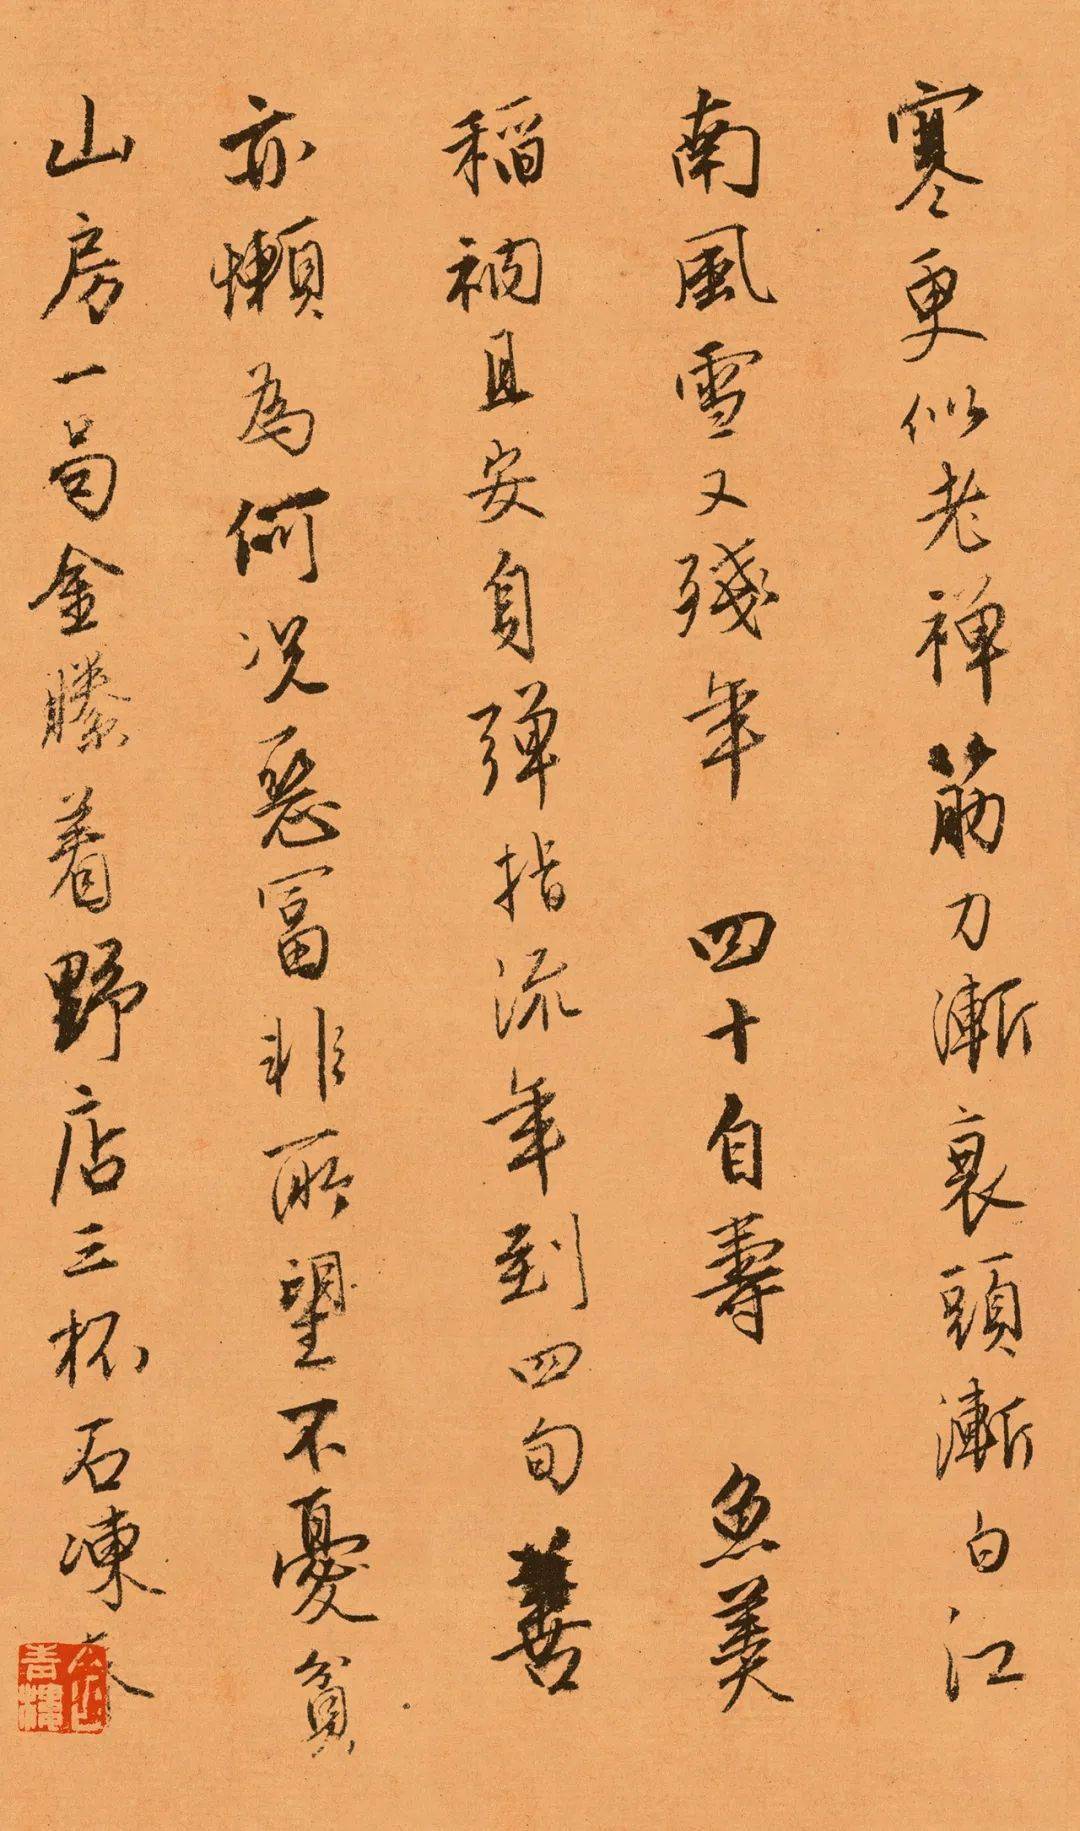 寒更似老禅筋力漸衰頭漸白江
南風雪又殘年 四十自壽 魚羹
稻衲且安身彈指流年到四旬善
亦懶為何況惡富非所望不憂貧
山房一局金縢着野店三杯石凍春